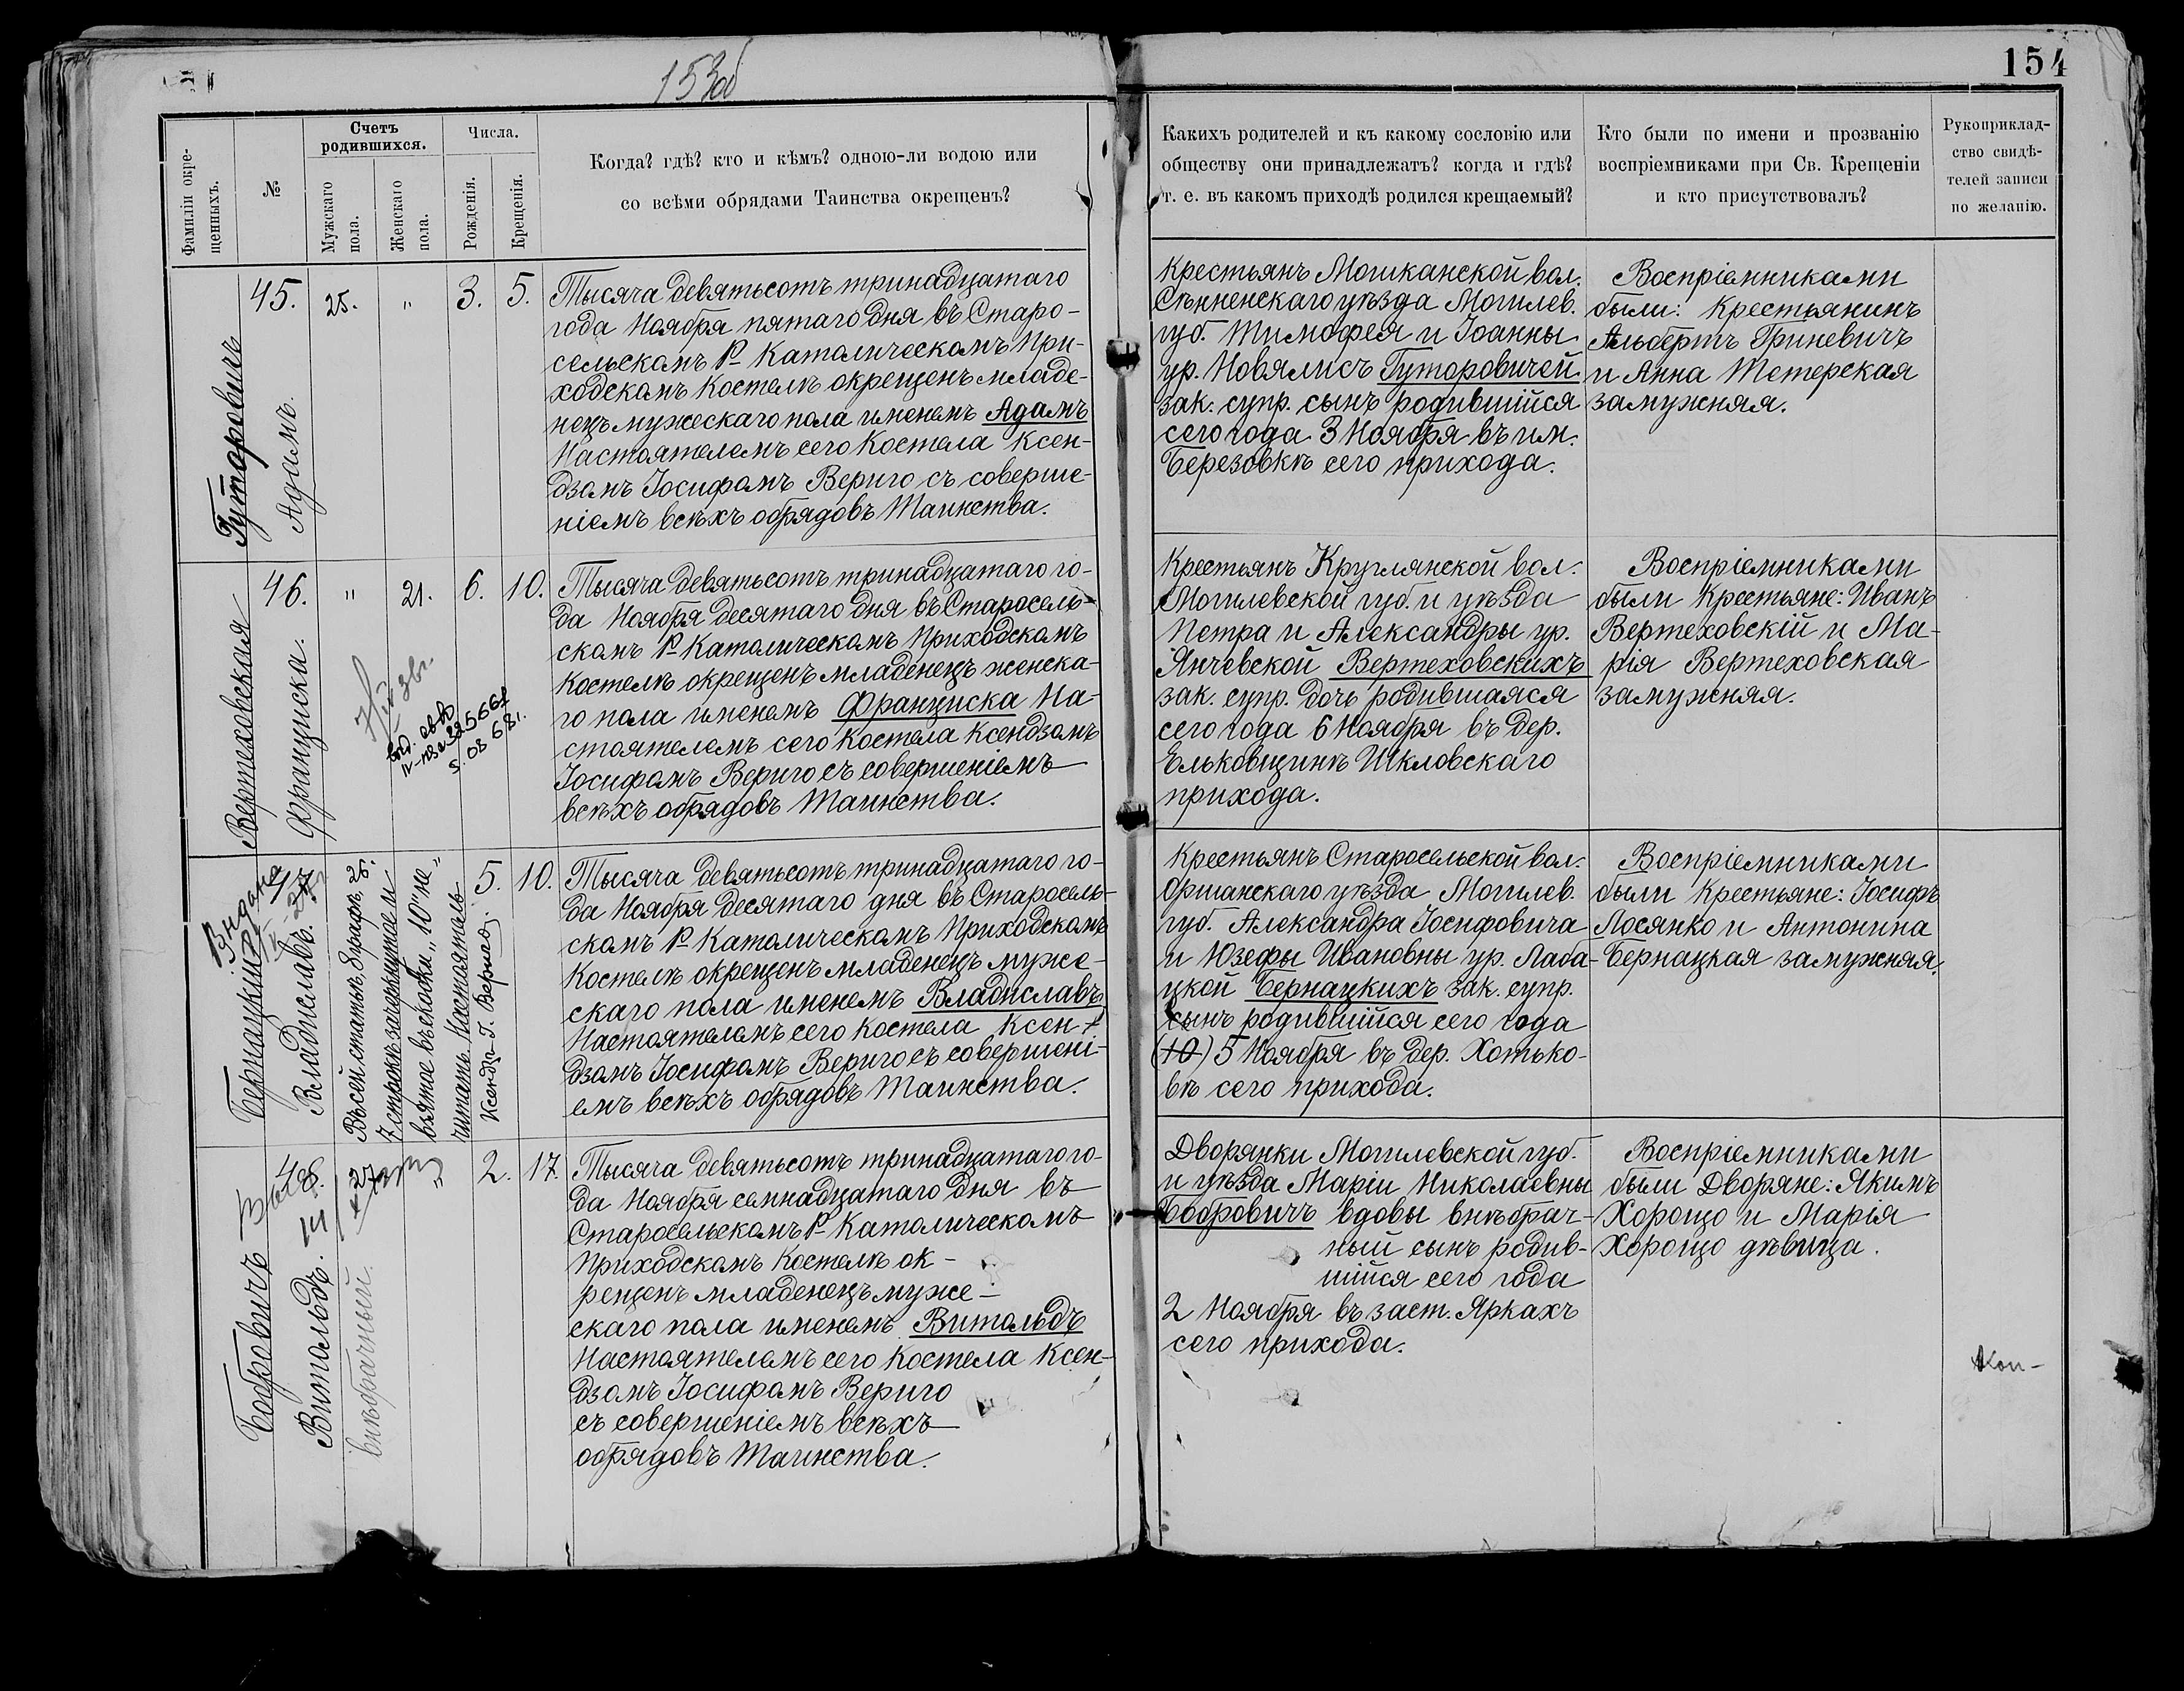 153об
154
Фамиліи окре-
щенныхъ.
№
Счетъ
родившихся.
Мужскаго
пола.
Женскаго
пола.
Числа.
Рожденія.
Крещенія.
Когда? гдѣ? кто и кѣмъ? одною-ли водою или
со всѣми обрядами Таинства окрещенъ?
Какихъ родителей и къ какому сословію или
обществу они принадлежатъ? когда и гдѣ?
т. е. въ какомъ приходѣ родился крещаемый?
Кто были по имени и прозванію
воспріемниками при Св. Крещеніи
и кто присутствовалъ?
Рукоприклад-
ство свидѣ-
телей записи
по желанію.
Гуторовичъ
Адамъ.
45. 25. " 3. 5.
Тысяча девятьсотъ тринадцатаго
года Ноября пятаго дня въ Старо-
сельскомъ Р- Католическомъ При-
ходскомъ Костелѣ окрещенъ младе-
нецъ мужескаго пола именемъ Адамъ
Настоятелемъ сего Костела Ксен-
дзомъ Іосифомъ Вериго съ соверше-
ніемъ всѣхъ обрядовъ Таинства.
Крестьянъ Мошканской вол.
Сѣнненскаго уѣзда Могилев.
губ. Тимофея и Іоанны
ур. Новялисъ Гуторовичей
зак. супр. сынъ родившійся
сего года 3 Ноября въ им.
Березовкѣ сего прихода.
Воспріемниками
были: Крестьянинъ
Альбертъ Гриневичъ
и Анна Тетерская
замужняя.
Вертеховская
Франциска.
46. " 21. 6. 10.
Тысяча девятьсотъ тринадцатаго го-
да Ноября десятаго дня въ Старосель-
скомъ Р- Католическомъ Приходскомъ
Костелѣ окрещенъ младенецъ женска-
го пола именемъ Франциска На-
стоятелемъ сего Костела Ксендзомъ
Іосифомъ Вериго съ совершеніемъ
всѣхъ обрядовъ Таинства.
Крестьянъ Круглянской вол.
Могилевской губ. и уѣзда
Петра и Александры ур.
Янчевской Вертеховскихъ
зак. супр. дочь родившаяся
сего года 6 Ноября въ дер.
Ельковщинѣ Шкловскаго
прихода.
Воспріемниками
были Крестьяне: Иванъ
Вертеховскій и Ма-
рія Вертеховская
замужняя.
Бернацкій
Владиславъ.
Выдана
47. 26. " 5. 10.
Въ сей статьѣ, 8 графѣ,
7 строкѣ зачеркнутое и
взятое въ скобки „10" не
читать Настоятель
Ксендзъ І. Вериго.
Тысяча девятьсотъ тринадцатаго го-
да Ноября десятаго дня въ Старосель-
скомъ Р- Католическомъ Приходскомъ
Костелѣ окрещенъ младенецъ муже-
скаго пола именемъ Владиславъ
Настоятелемъ сего Костела Ксен-
дзомъ Іосифомъ Вериго съ совершені-
емъ всѣхъ обрядовъ Таинства.
Крестьянъ Старосельской вол.
Оршанскаго уѣзда Могилев.
губ. Александра Іосифовича
и Юзефы Ивановны ур. Лаба-
цкой Бернацкихъ зак. супр.
сынъ родившійся сего года
(10) 5 Ноября въ дер. Хотько-
вѣ сего прихода.
Воспріемниками
были Крестьяне: Іосифъ
Лосянко и Антонина
Бернацкая замужняя.
Бобровичъ
Витольдъ.
внѣбрачный.
48. 27 " 2. 17.
Тысяча девятьсотъ тринадцатаго го-
да Ноября семнадцатаго дня въ
Старосельскомъ Р- Католическомъ
Приходскомъ Костелѣ ок-
рещенъ младенецъ муже-
скаго пола именемъ Витольдъ
Настоятелемъ сего Костела Ксен-
дзомъ Іосифомъ Вериго
съ совершеніемъ всѣхъ
обрядовъ Таинства.
Дворянки Могилевской губ.
и уѣзда Маріи Николаевны
Бобровичъ вдовы внѣбрач-
ный сынъ родив-
шійся сего года
2 Ноября въ заст. Яркахъ
сего прихода.
Воспріемниками
были Дворяне: Якимъ
Хорощо и Марія
Хорощо дѣвица.
Коп-